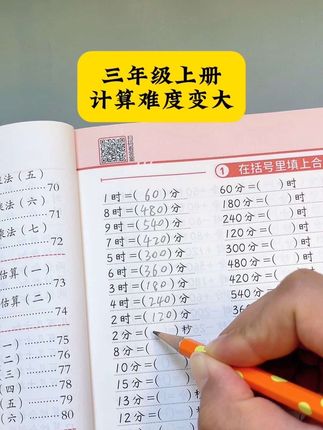 三年级上册
计算难度变大
1 在括号里填上合
1时=(60)分
8时=(480)分
9时=(540)分
7时=(420)分
5时=(300)分
6时=(360)分
3时=(180)分
4时=(240)分
2时=(120)分
2分=( )秒
8分=(
10分=(
15分=(
13分=(
12分=(
16分=(
60分=( )时
180分=( )时
240分=( )时
120分=( )时
300分=( )时
480分=( )时
420分=(
540分=(
360分
2分
乘法（五）
70
乘法（六）
71
乘法（七）
72
73
估算（一）
73
估算（二）
74
74
（一） 75
（二） 76
（三） 77
（四） 78
（五） 79
（六） 80